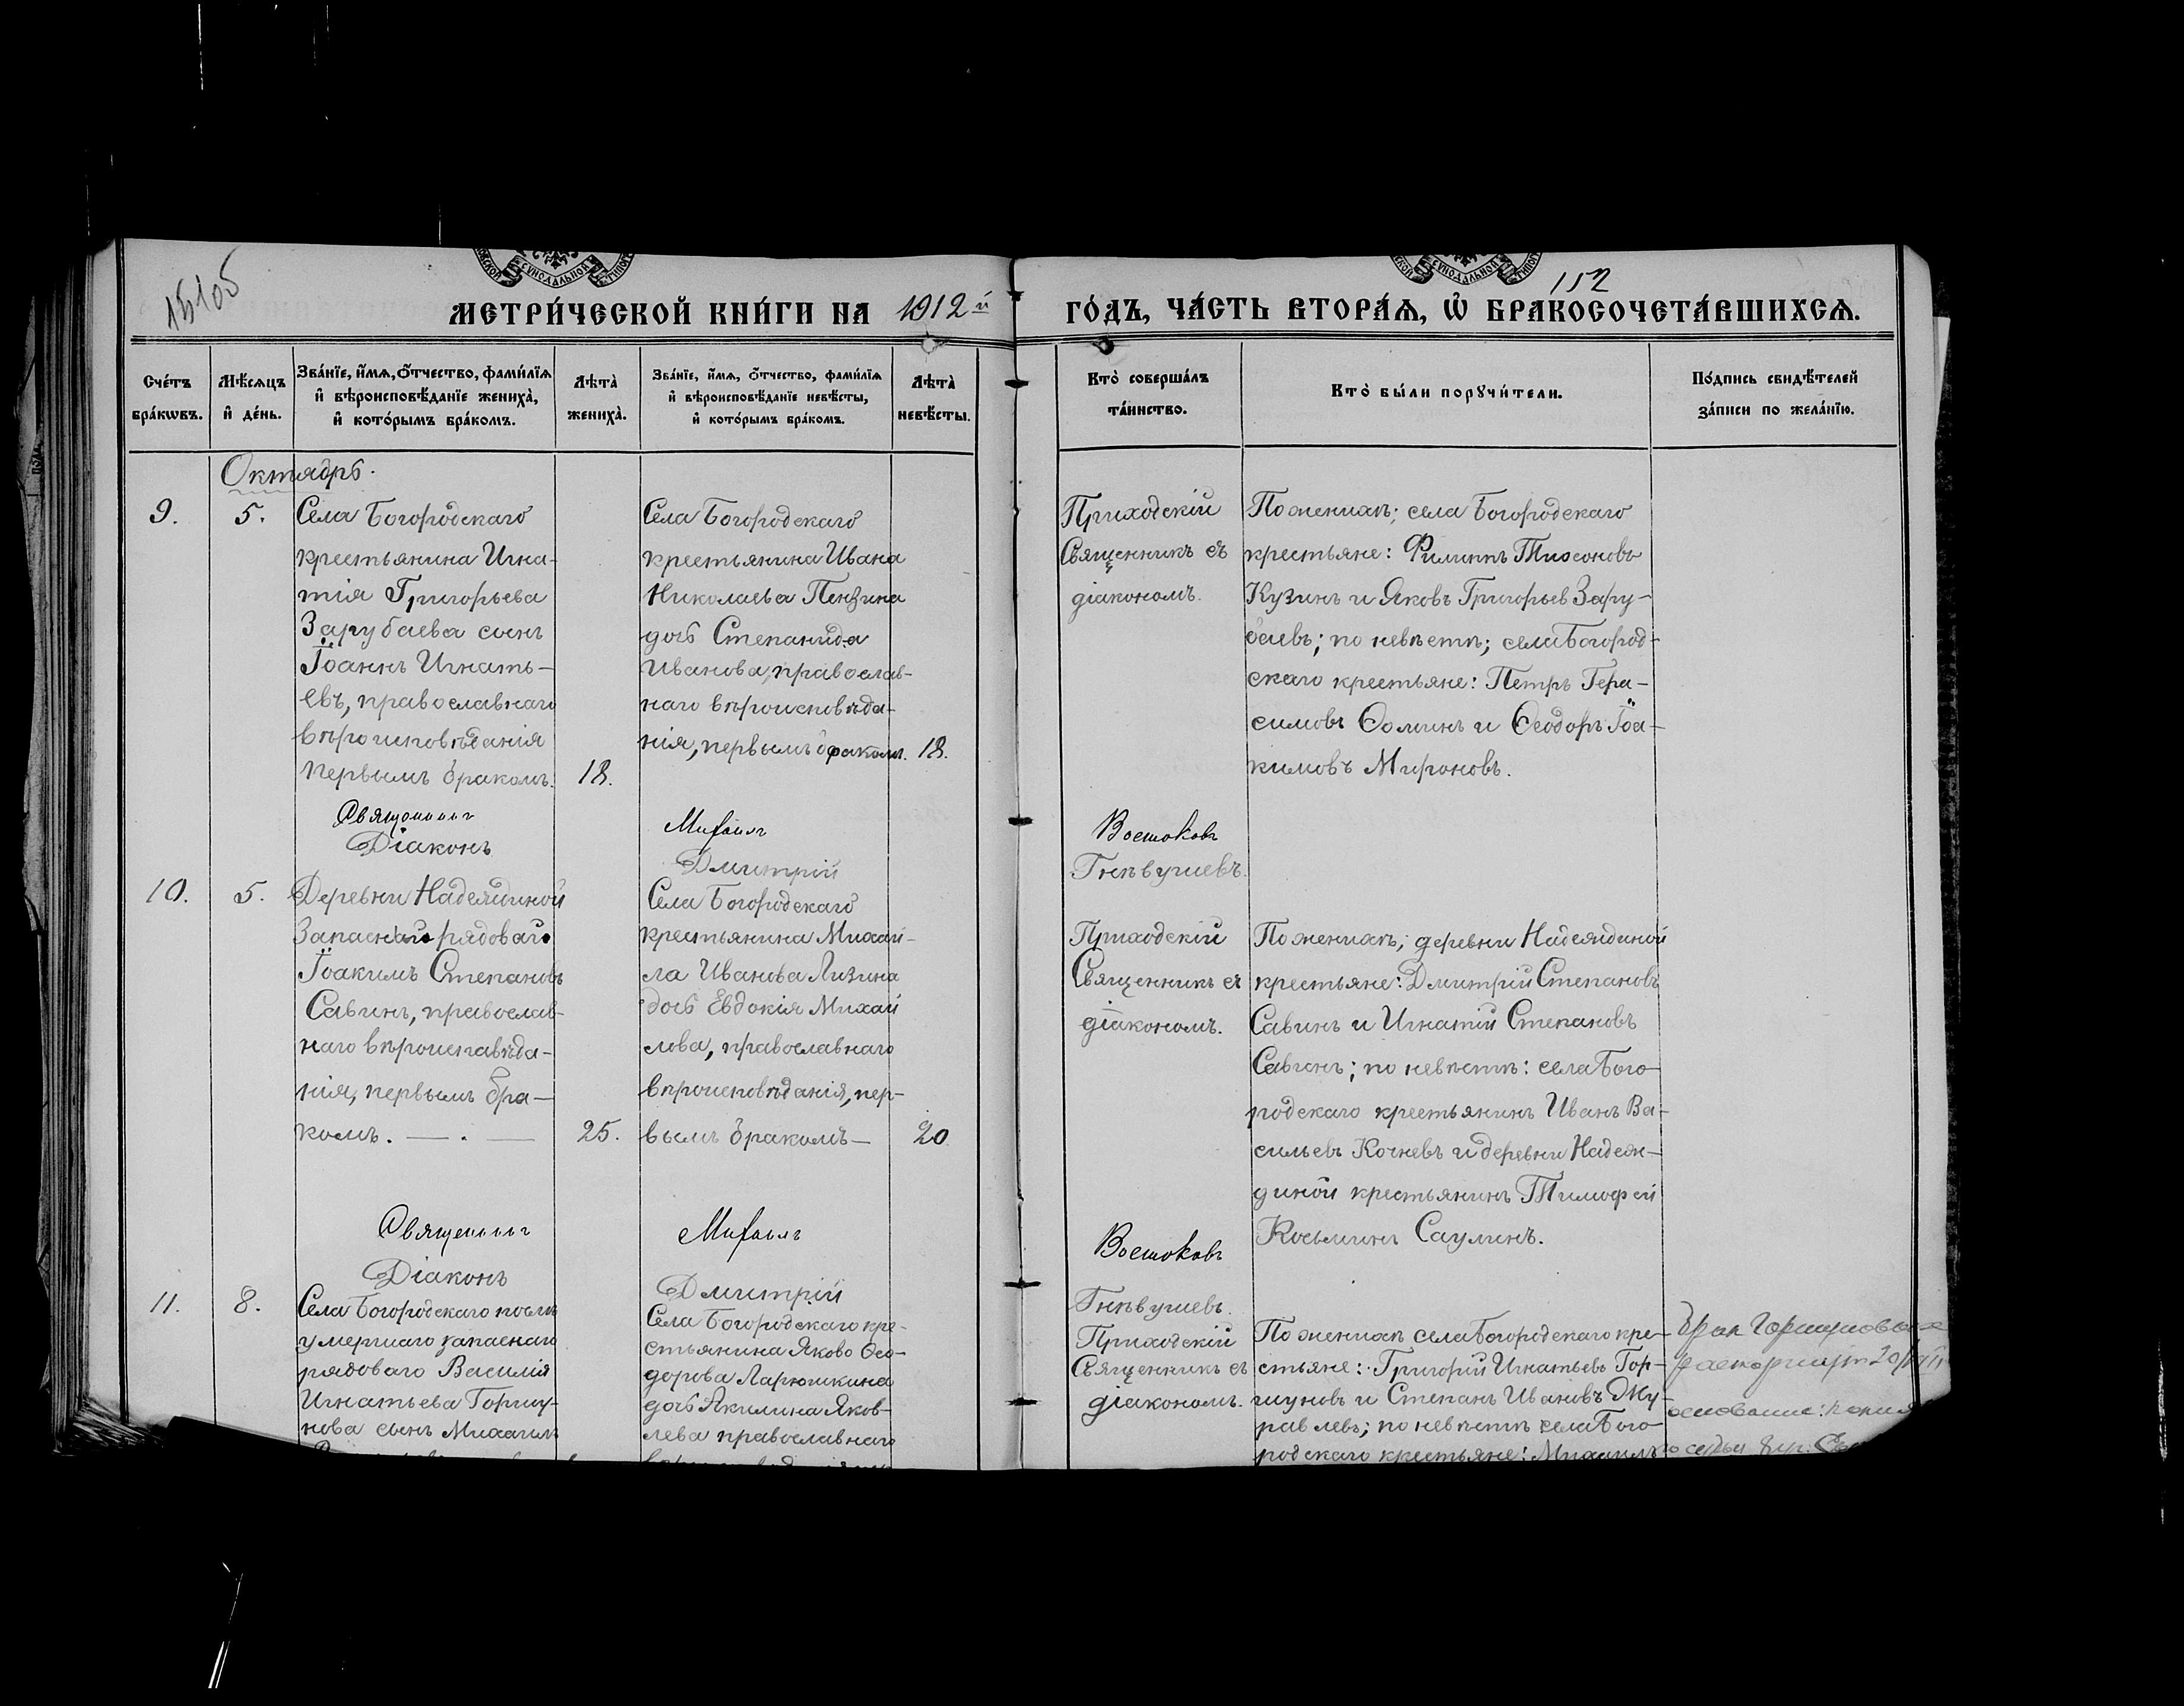 15105
152
СѴНОДАЛЬНОЙ
СѴНОДАЛЬНОЙ
МЕТРИ́ЧЕСКОЙ КНИ́ГИ НА 1912 й
ГО́ДЪ, ЧА́СТЬ ВТОРА́Ѧ, Ѽ БРАКОСОЧЕТА́ВШИХСѦ.
Сче́тъ
бра́кѡвъ.
Мѣ́сѧцъ
и҆ де́нь.
Зва́нїе, и҆́мѧ, ѻ҆́тчество, фами́лїѧ
и҆ вѣроисповѣ́данїе жениха̀,
и҆ кото́рымъ бра́комъ.
Лѣта̀
жениха̀.
Зва́нїе, и҆́мѧ, ѻ҆́тчество, фами́лїѧ
и҆ вѣроисповѣ́данїе невѣ́сты,
и҆ кото́рымъ бра́комъ.
Лѣта̀
невѣ́сты.
Кто̀ соверша́лъ
та́инство.
Кто̀ бы́ли порꙋчи́тели.
По́дпись свидѣ́телей
за́писи по жела́нїю.
Октябрь.
9.
5.
Села Богородскаго
крестьянина Игна-
тія Григорьева
Зарубаева сынъ
Іоаннъ Игнать-
евъ, православнаго
вѣроисповѣданія
первымъ бракомъ.
18.
Села Богородскаго
крестьянина Ивана
Николаева Пензина
дочь Степанида
Иванова, православ-
наго вѣроисповѣда-
нія, первымъ бракомъ.
18.
Приходскій
Священникъ съ
діакономъ.
По женихѣ; села Богородскаго
крестьяне: Филиппъ
Кузинъ и Яковъ Григорьев Зару-
баевъ; по невѣстѣ; села Богород-
скаго крестьяне: Петръ Гера-
симовъ Ѳоминъ и Ѳеодоръ Іоа-
кимовъ Мироновъ.
Священникъ
Михаилъ
Востоковъ
Діаконъ
Дмитрій
Гнѣвушевъ.
10.
5.
Деревни Надеждиной
Запаснаго рядоваго
Іоакимъ Степановъ
Савинъ, православ-
наго вѣроисповѣда-
нія, первымъ бра-
комъ. — . —
25.
Села Богородскаго
крестьянина Михаи-
ла Иванова Лизина
дочь Евдокія Михай
лова, православнаго
вѣроисповѣданія, пер-
вымъ бракомъ —
20
Приходскій
Священникъ съ
діакономъ.
По женихѣ; деревни Надеждиной
крестьяне: Дмитрій Степановъ
Савинъ и Игнатій Степановъ
Савинъ; по невѣстѣ: села Бого-
родскаго крестьянинъ Иванъ Ва-
сильевъ Кочневъ и деревни Надеж-
диной крестьянинъ Тимофей
Косьминъ Саулинъ.
Священникъ
Михаилъ
Востоковъ
Діаконъ
Дмитрій
Гнѣвушевъ.
11.
8.
Села Богородскаго послѣ
умершаго запаснаго
рядоваго Василія
Игнатьева Горшу-
нова сынъ Михаилъ
Села Богородскаго кре-
стьянина Якова Ѳео-
дорова Ларюшкина
дочь Акилина Яков-
лева православнаго
Приходскій
Священникъ съ
діакономъ.
По женихѣ села Богородскаго кре-
стьяне: Григорій Игнатьевъ Гор-
шуновъ и Степанъ Ивановъ Жу-
равлевъ; по невѣстѣ села Бого-
родскаго крестьяне: Михаилъ
Брак Горшуновых
расторгнут 20/
основание: копия